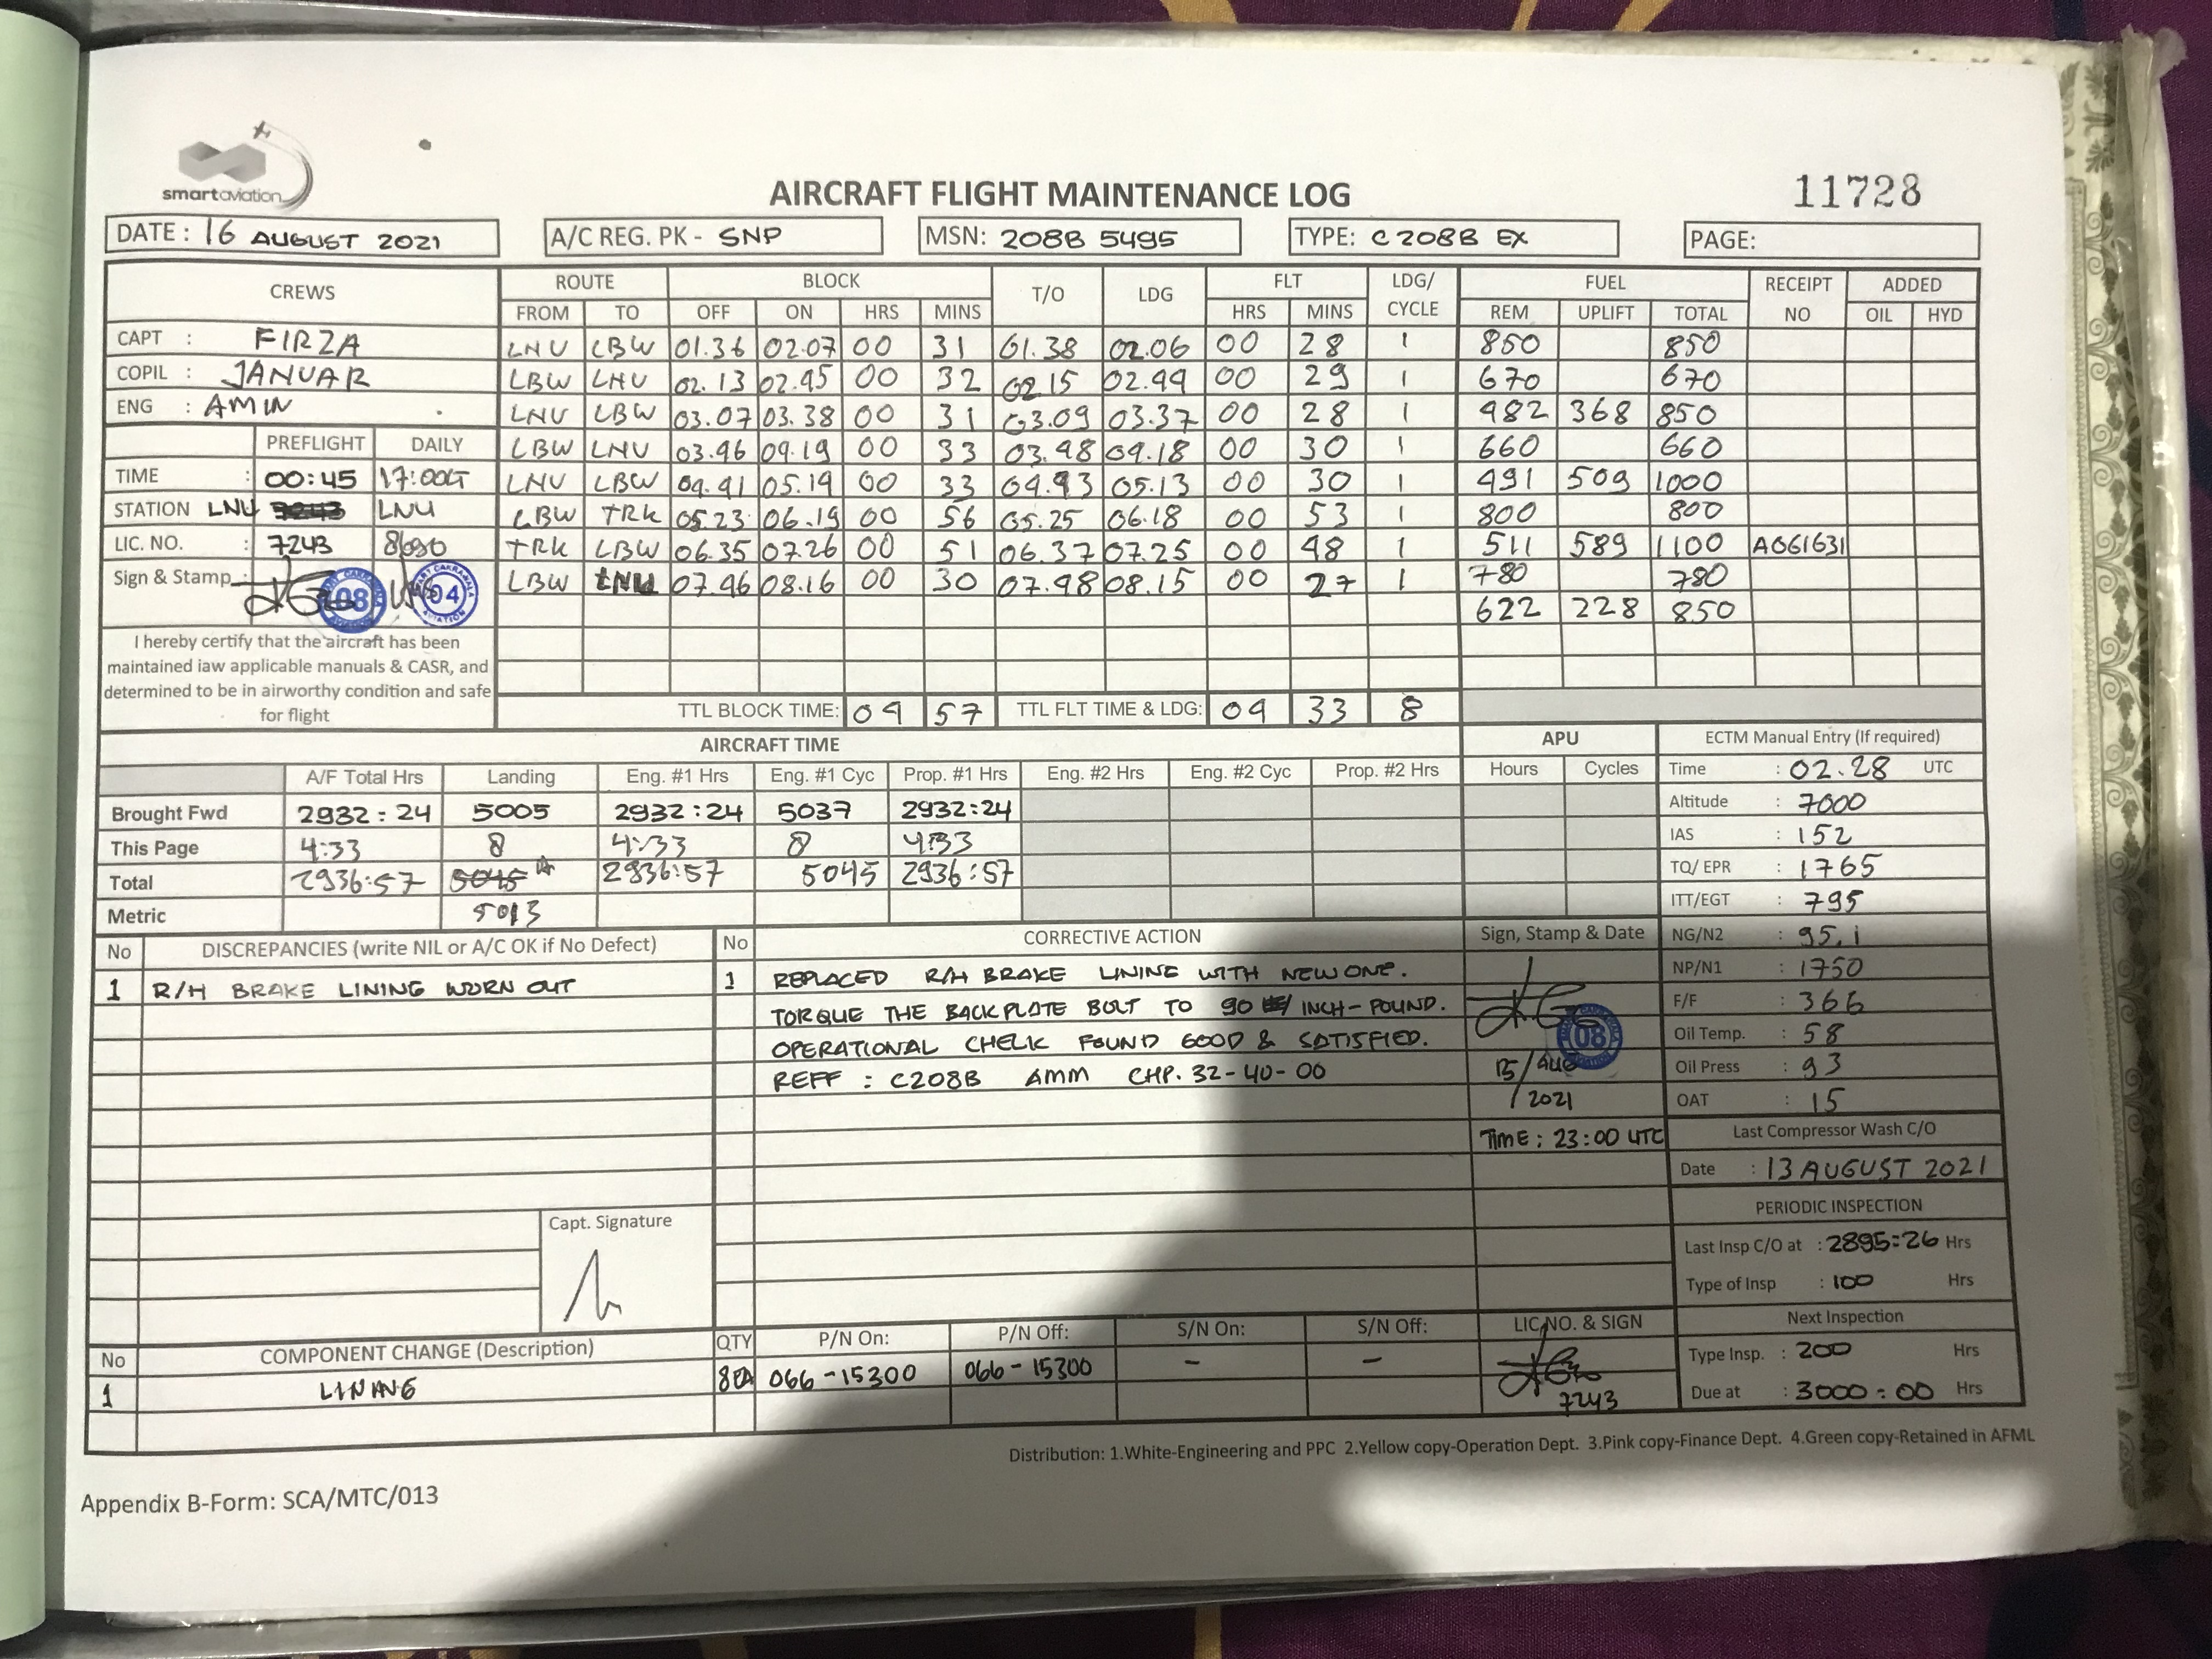 smartaviation
AIRCRAFT FLIGHT MAINTENANCE LOG
11728
DATE : 16 AUGUST 2021
A/C REG. PK - SNP
MSN: 208B 5495
TYPE: C208B EX
PAGE:
CREWS ROUTE BLOCK T/O LDG FLT LDG/ CYCLE FUEL RECEIPT NO ADDED
FROM TO OFF ON HRS MINS HRS MINS REM UPLIFT TOTAL OIL HYD
CAPT : FIRZA
COPIL : JANUAR
ENG : AMIN
LNU LBW 01.36 02.07 00 31 01.38 02.06 00 28 1 850 850
LBW LNU 02.13 02.45 00 32 02.15 02.44 00 29 1 670 670
LNU LBW 03.07 03.38 00 31 03.09 03.37 00 28 1 482 368 850
LBW LNU 03.46 04.19 00 33 03.48 04.18 00 30 1 660 660
LNU LBW 04.41 05.14 00 33 04.43 05.13 00 30 1 491 509 1000
LBW TRK 05.23 06.19 00 56 05.25 06.18 00 53 1 800 800
TRK LBW 06.35 07.26 00 51 06.37 07.25 00 48 1 511 589 1100 A061631
LBW LNU 07.46 08.16 00 30 07.48 08.15 00 27 1 780 780
622 228 850
PREFLIGHT DAILY
TIME : 00:45 17:00LT
STATION LNU LNU
LIC. NO. : 7243
Sign & Stamp :
08
04
I hereby certify that the aircraft has been
maintained iaw applicable manuals & CASR, and
determined to be in airworthy condition and safe
for flight
TTL BLOCK TIME: 04 57 TTL FLT TIME & LDG: 04 33 8
AIRCRAFT TIME
APU
A/F Total Hrs Landing Eng. #1 Hrs Eng. #1 Cyc Prop. #1 Hrs Eng. #2 Hrs Eng. #2 Cyc Prop. #2 Hrs Hours Cycles
Brought Fwd 2932:24 5005 2932:24 5037 2932:24
This Page 4:33 8 4:33 8 4:33
Total 2936:57 5045 2936:57 5045 2936:57
Metric 5013
ECTM Manual Entry (If required)
Time : 02.28 UTC
Altitude : 7000
IAS : 152
TQ/ EPR : 1765
ITT/EGT : 795
NG/N2 : 95.1
NP/N1 : 1750
F/F : 366
Oil Temp. : 58
Oil Press : 93
OAT : 15
Last Compressor Wash C/O
Date : 13 AUGUST 2021
PERIODIC INSPECTION
Last Insp C/O at : 2895:26 Hrs
Type of Insp : 100 Hrs
Next Inspection
Type Insp. : 200 Hrs
Due at : 3000:00 Hrs
No DISCREPANCIES (write NIL or A/C OK if No Defect)
1 R/H BRAKE LINING WORN OUT
No CORRECTIVE ACTION
1 REPLACED R/H BRAKE LINING WITH NEW ONE.
TORQUE THE BACKPLATE BOLT TO 90 INCH-POUND.
OPERATIONAL CHECK FOUND GOOD & SATISFIED.
REFF : C208B AMM CHP. 32-40-00
Sign, Stamp & Date
08
15/AUG
/2021
TIME : 23:00 UTC
Capt. Signature
No COMPONENT CHANGE (Description) QTY P/N On: P/N Off: S/N On: S/N Off: LIC,NO. & SIGN
1 LINING 8EA 066-15300 066-15300 - - 7243
Distribution: 1.White-Engineering and PPC 2.Yellow copy-Operation Dept. 3.Pink copy-Finance Dept. 4.Green copy-Retained in AFML
Appendix B-Form: SCA/MTC/013